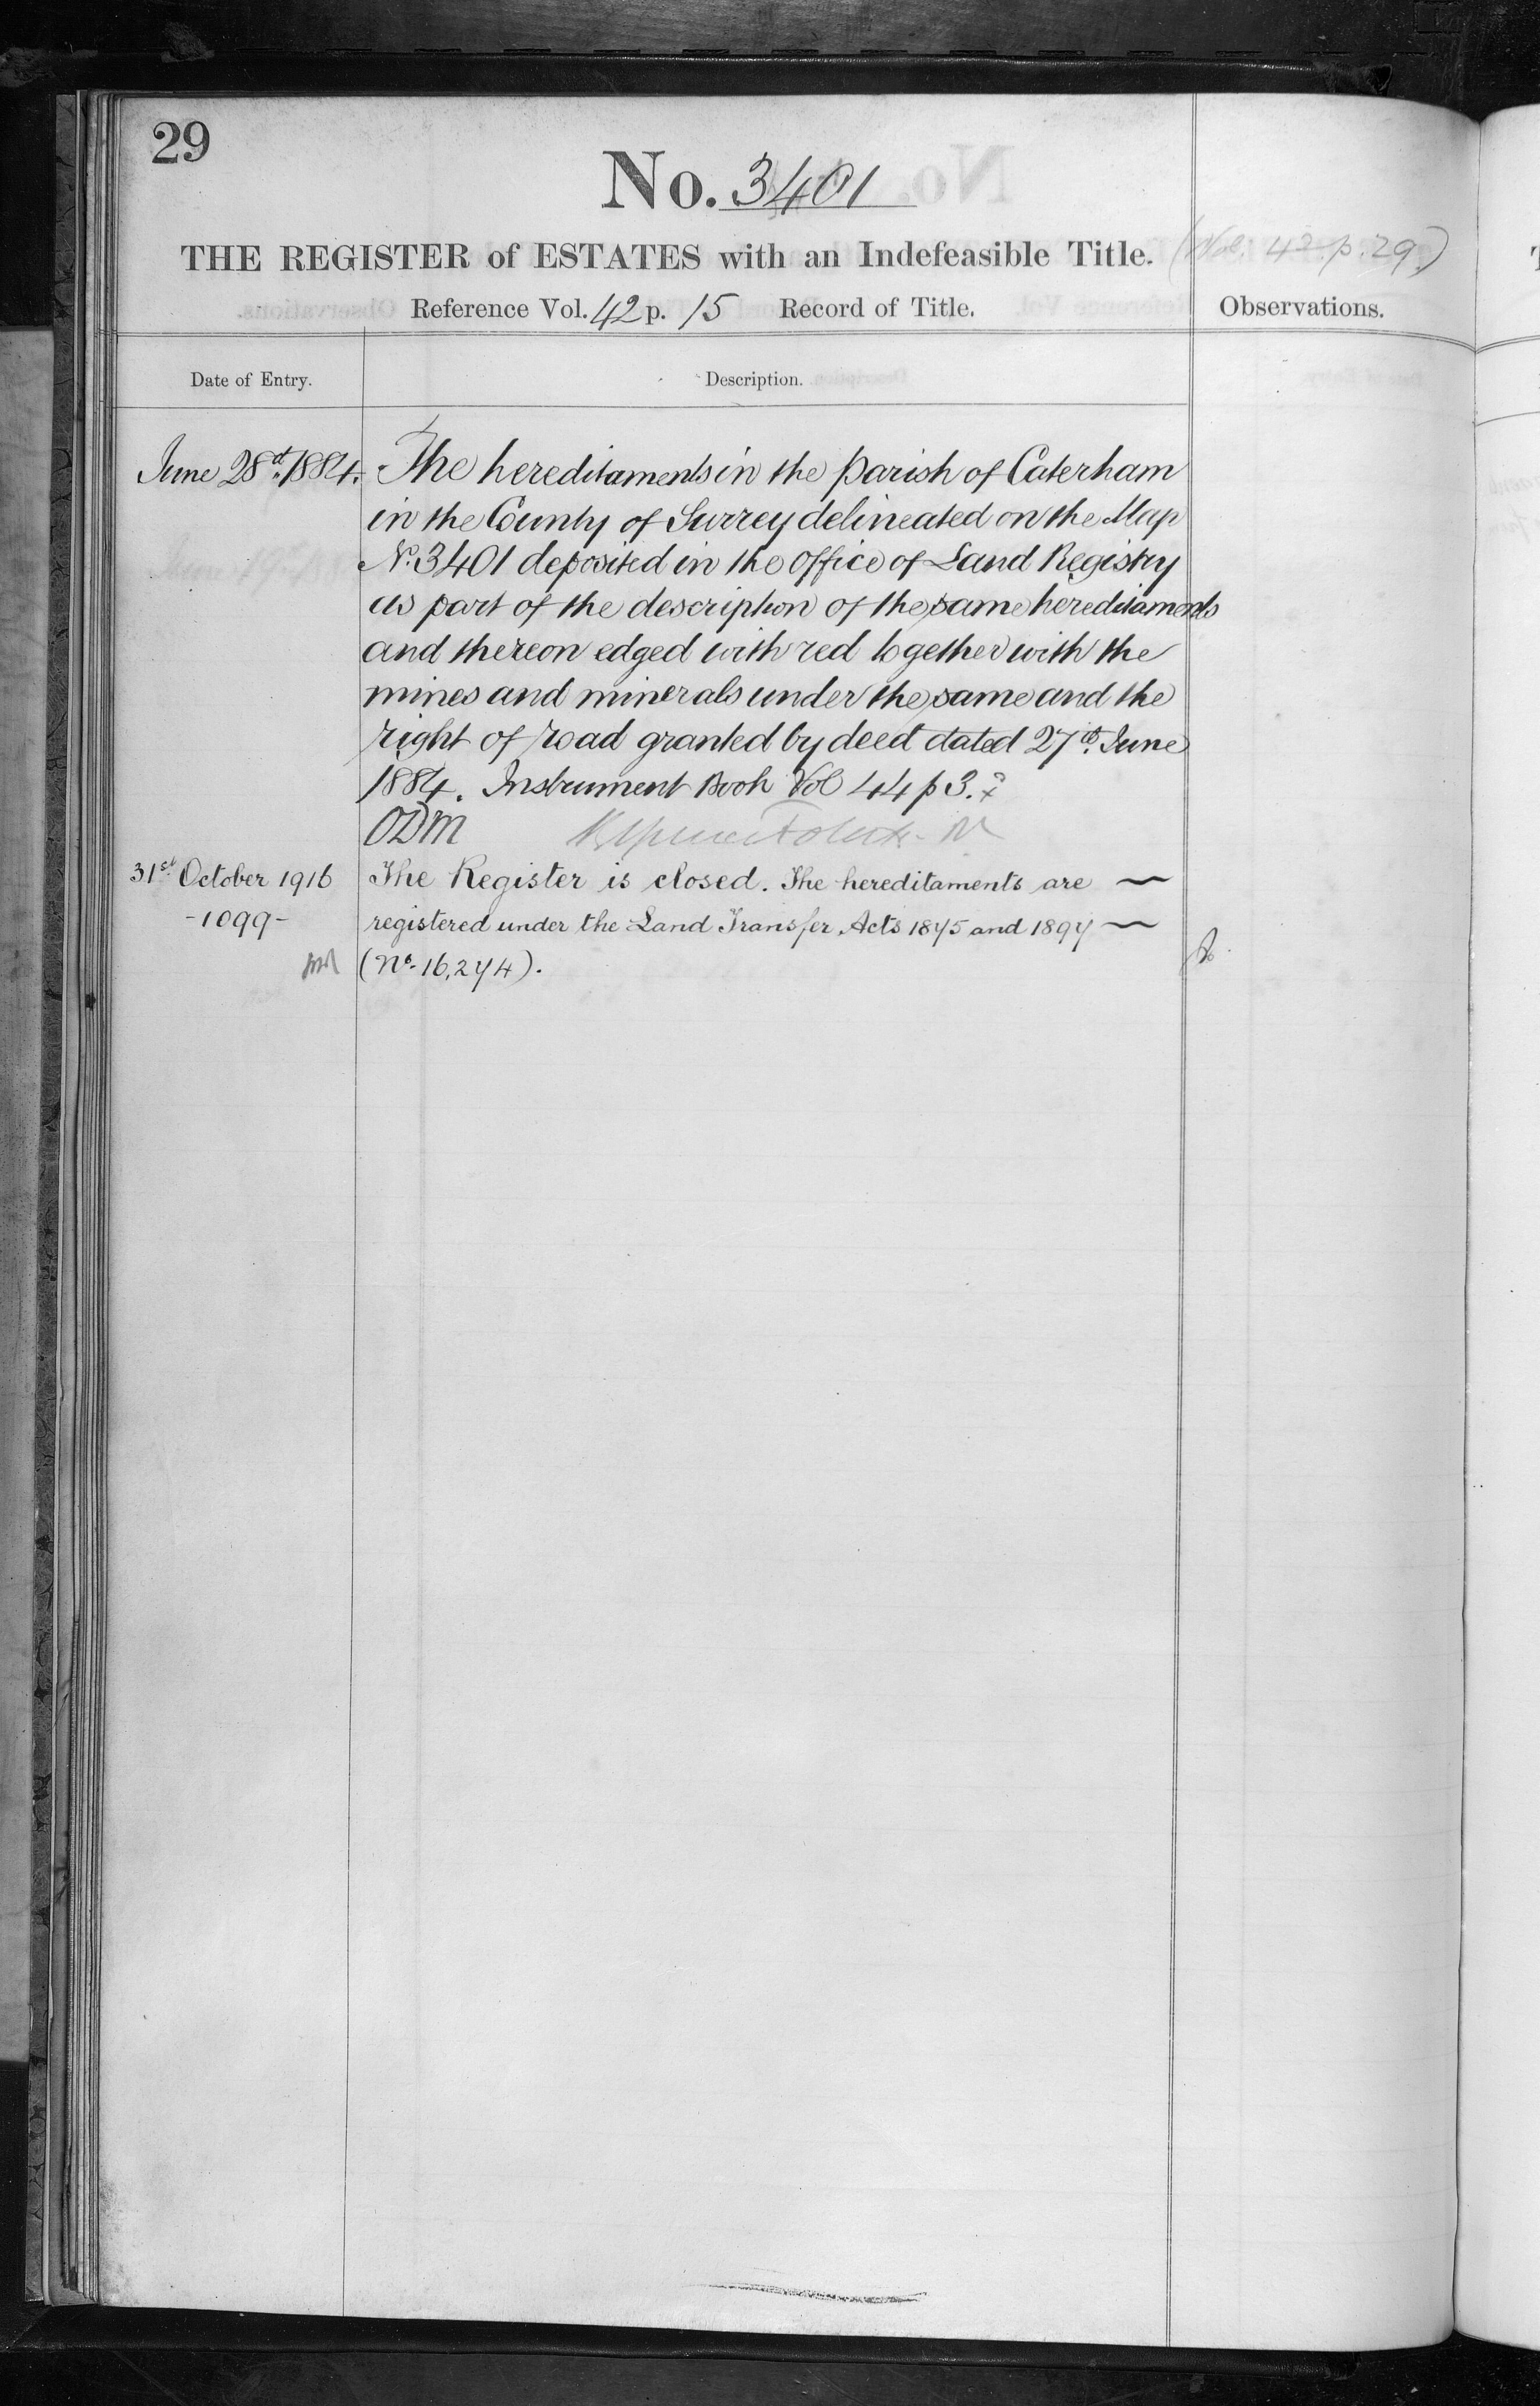 29
No. 3401
THE REGISTER of ESTATES with an Indefeasible Title.
(Vol. 42 p. 29.)
Reference Vol. 42 p. 15 Record of Title.
Observations.
Date of Entry.
Description.
June 28th. 1884.
The hereditaments in the Parish of Caterham
in the County of Surrey delineated on the Map
No. 3401 deposited in the office of Land Registry
as part of the description of the same hereditaments
and thereon edged with red together with the
mines and minerals under the same and the
right of road granted by deed dated 27th. June
1884. Instrument Book Vol 44 p 3.
ODM
31st October 1916
-1099-
The Register is closed. The hereditaments are —
registered under the Land Transfer Acts 1875 and 1897 —
(No. 16,274).